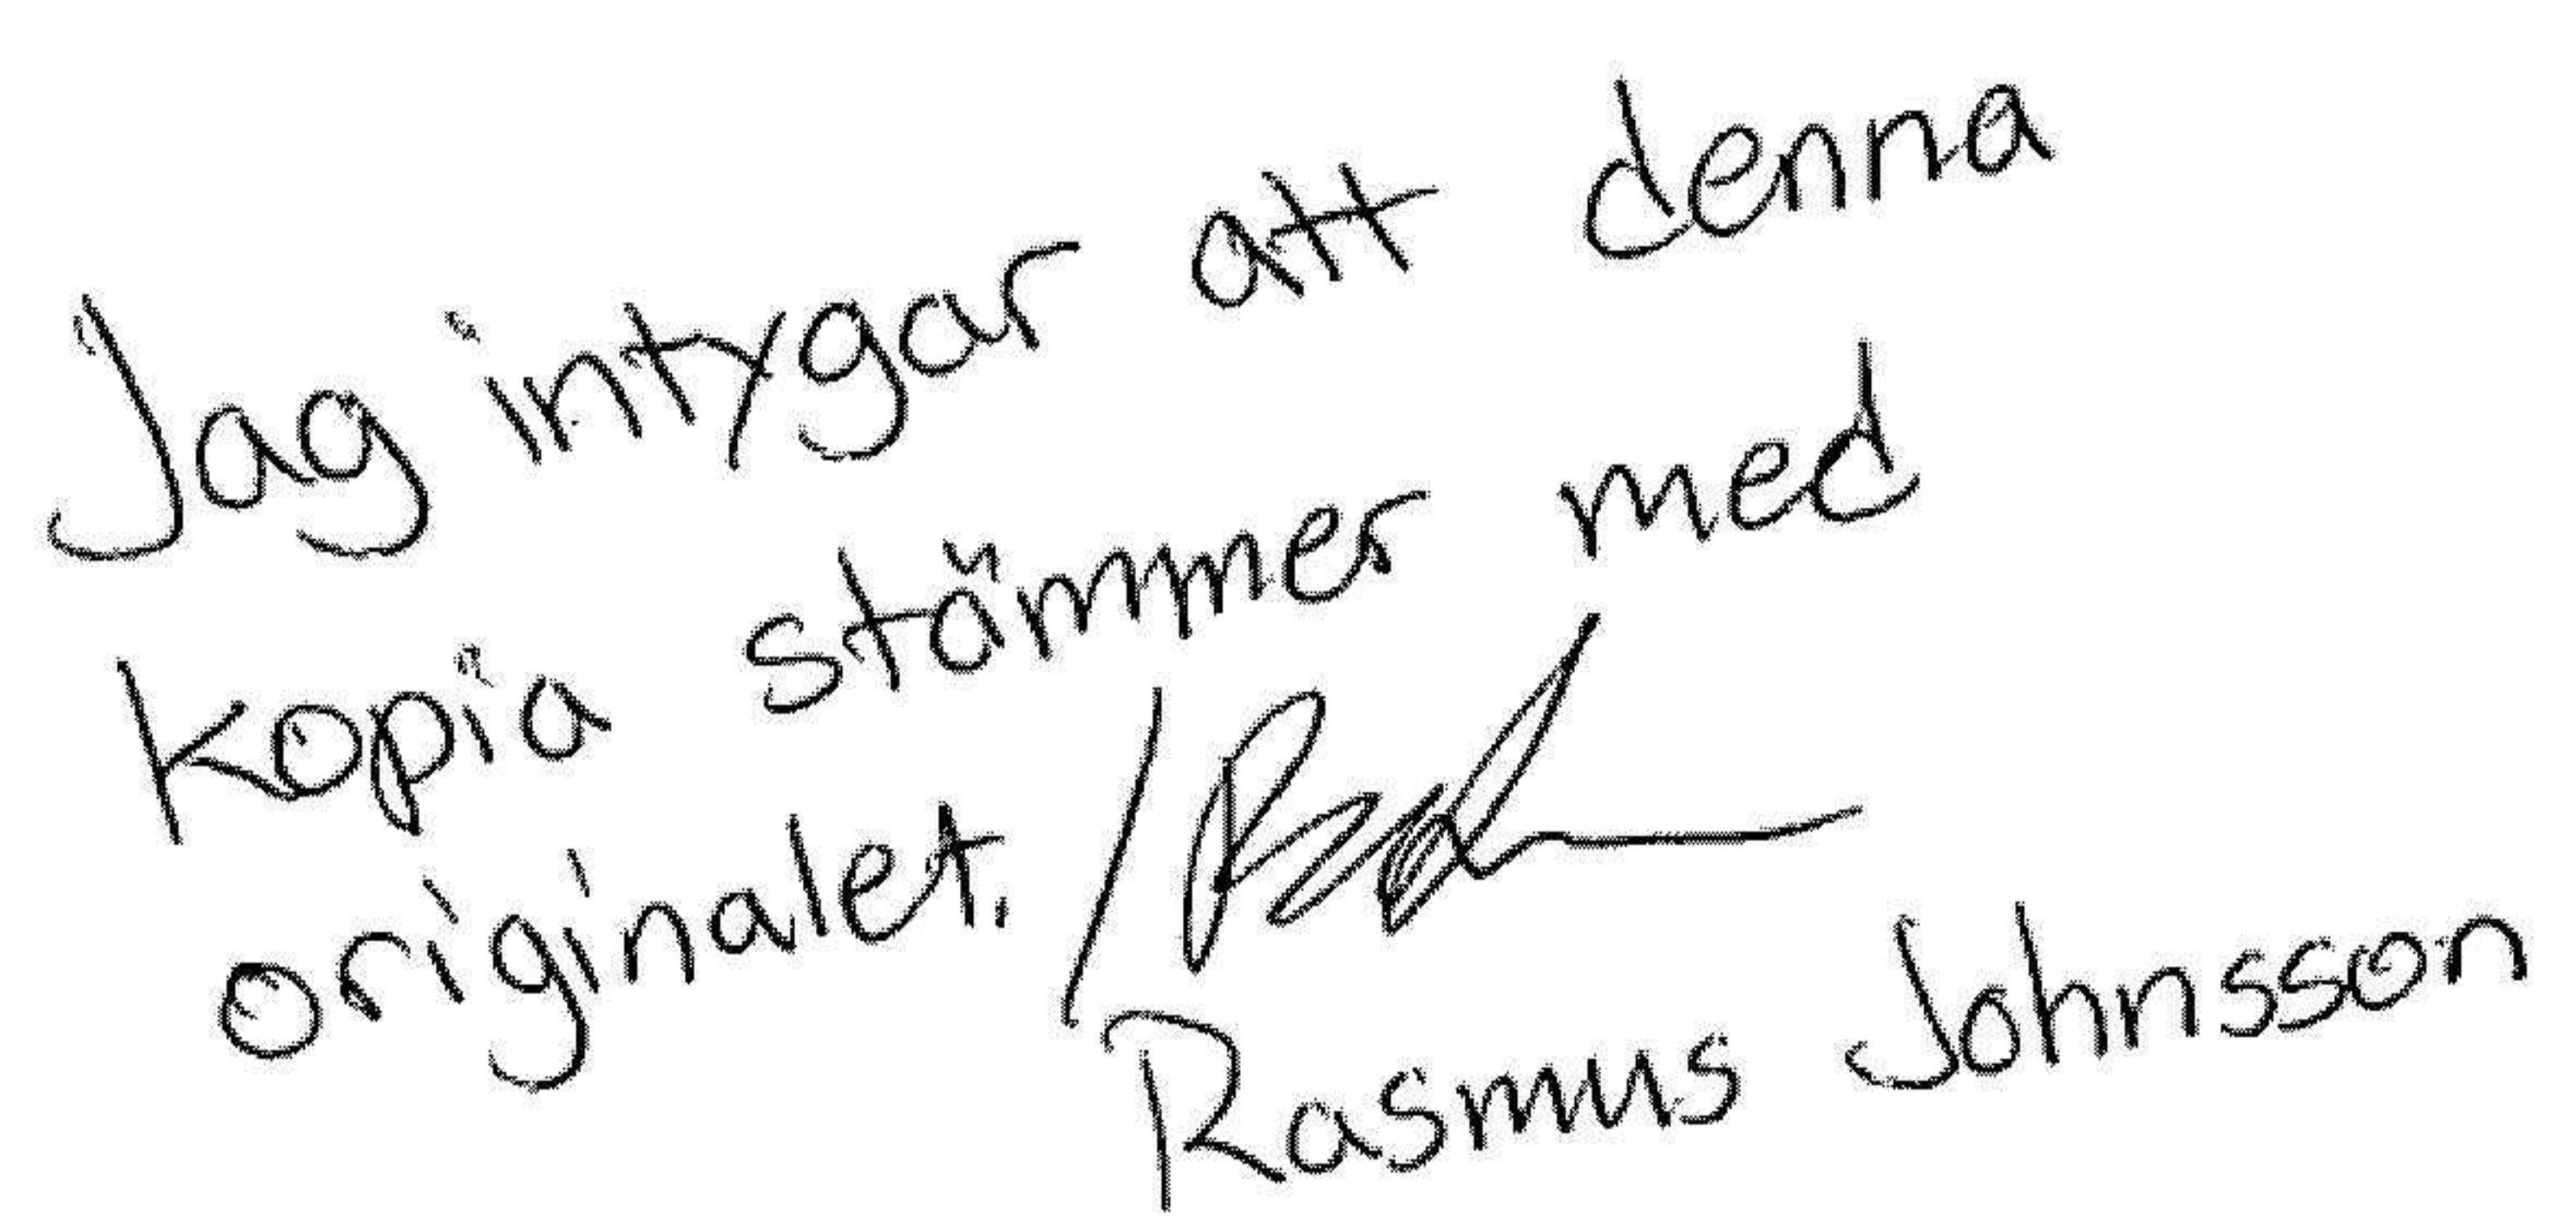 Jag intygar att denna
kopia stämmer med
originalet. /
Rasmus Johnsson